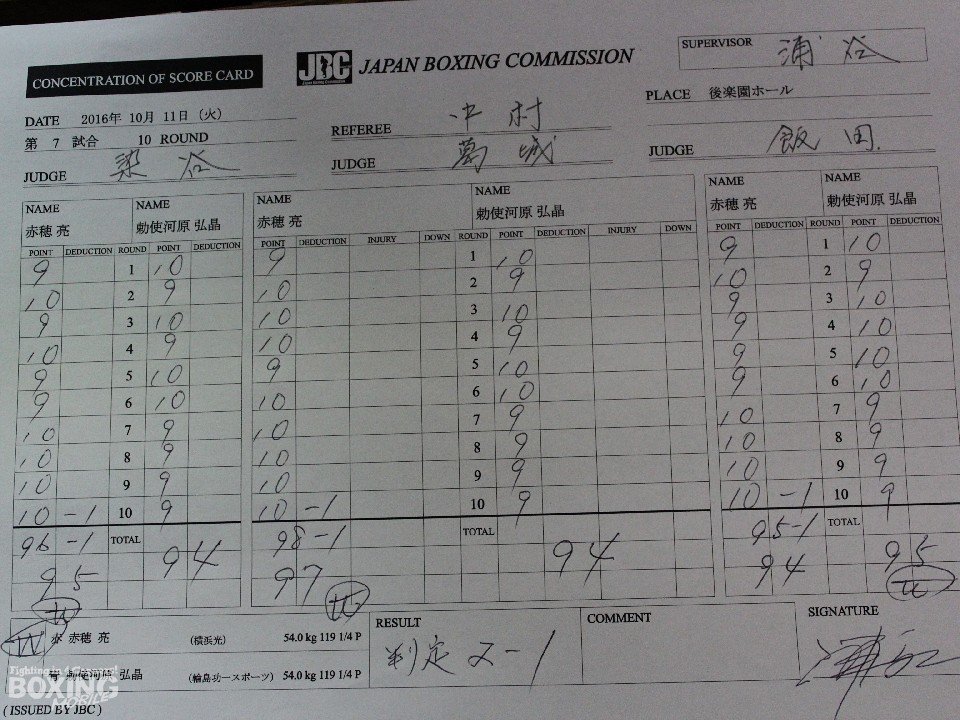 CONCENTRATION OF SCORE CARD
JBC JAPAN BOXING COMMISSION
SUPERVISOR 浦谷
DATE 2016年 10月 11日 (火)
PLACE 後楽園ホール
第 7 試合 10 ROUND
REFEREE 中村
JUDGE 染谷
JUDGE 葛城
JUDGE 飯田
NAME NAME NAME NAME NAME NAME
赤穂 亮 勅使河原 弘晶 赤穂 亮 勅使河原 弘晶 赤穂 亮 勅使河原 弘晶
POINT DEDUCTION ROUND POINT DEDUCTION POINT DEDUCTION INJURY DOWN ROUND POINT DEDUCTION INJURY DOWN POINT DEDUCTION ROUND POINT DEDUCTION
9 1 10 9 1 10 9 1 10
10 2 9 10 2 9 10 2 9
9 3 10 10 3 10 9 3 10
10 4 9 10 4 9 9 4 10
9 5 10 9 5 10 9 5 10
9 6 10 10 6 10 9 6 10
10 7 9 10 7 9 10 7 9
10 8 9 10 8 9 10 8 9
10 9 9 10 9 9 10 9 9
10 -1 10 9 10 -1 10 9 10 -1 10 9
96 -1 TOTAL 94 98 -1 TOTAL 94 95 -1 TOTAL 95
95 97 94
W W W
W 赤 赤穂 亮 (横浜光) 54.0 kg 119 1/4 P
青 勅使河原 弘晶 (輪島功一スポーツ) 54.0 kg 119 1/4 P
RESULT
判定 2-1
COMMENT
SIGNATURE
Fighting in 4 Channel
BOXING
MOBILE
( ISSUED BY JBC )